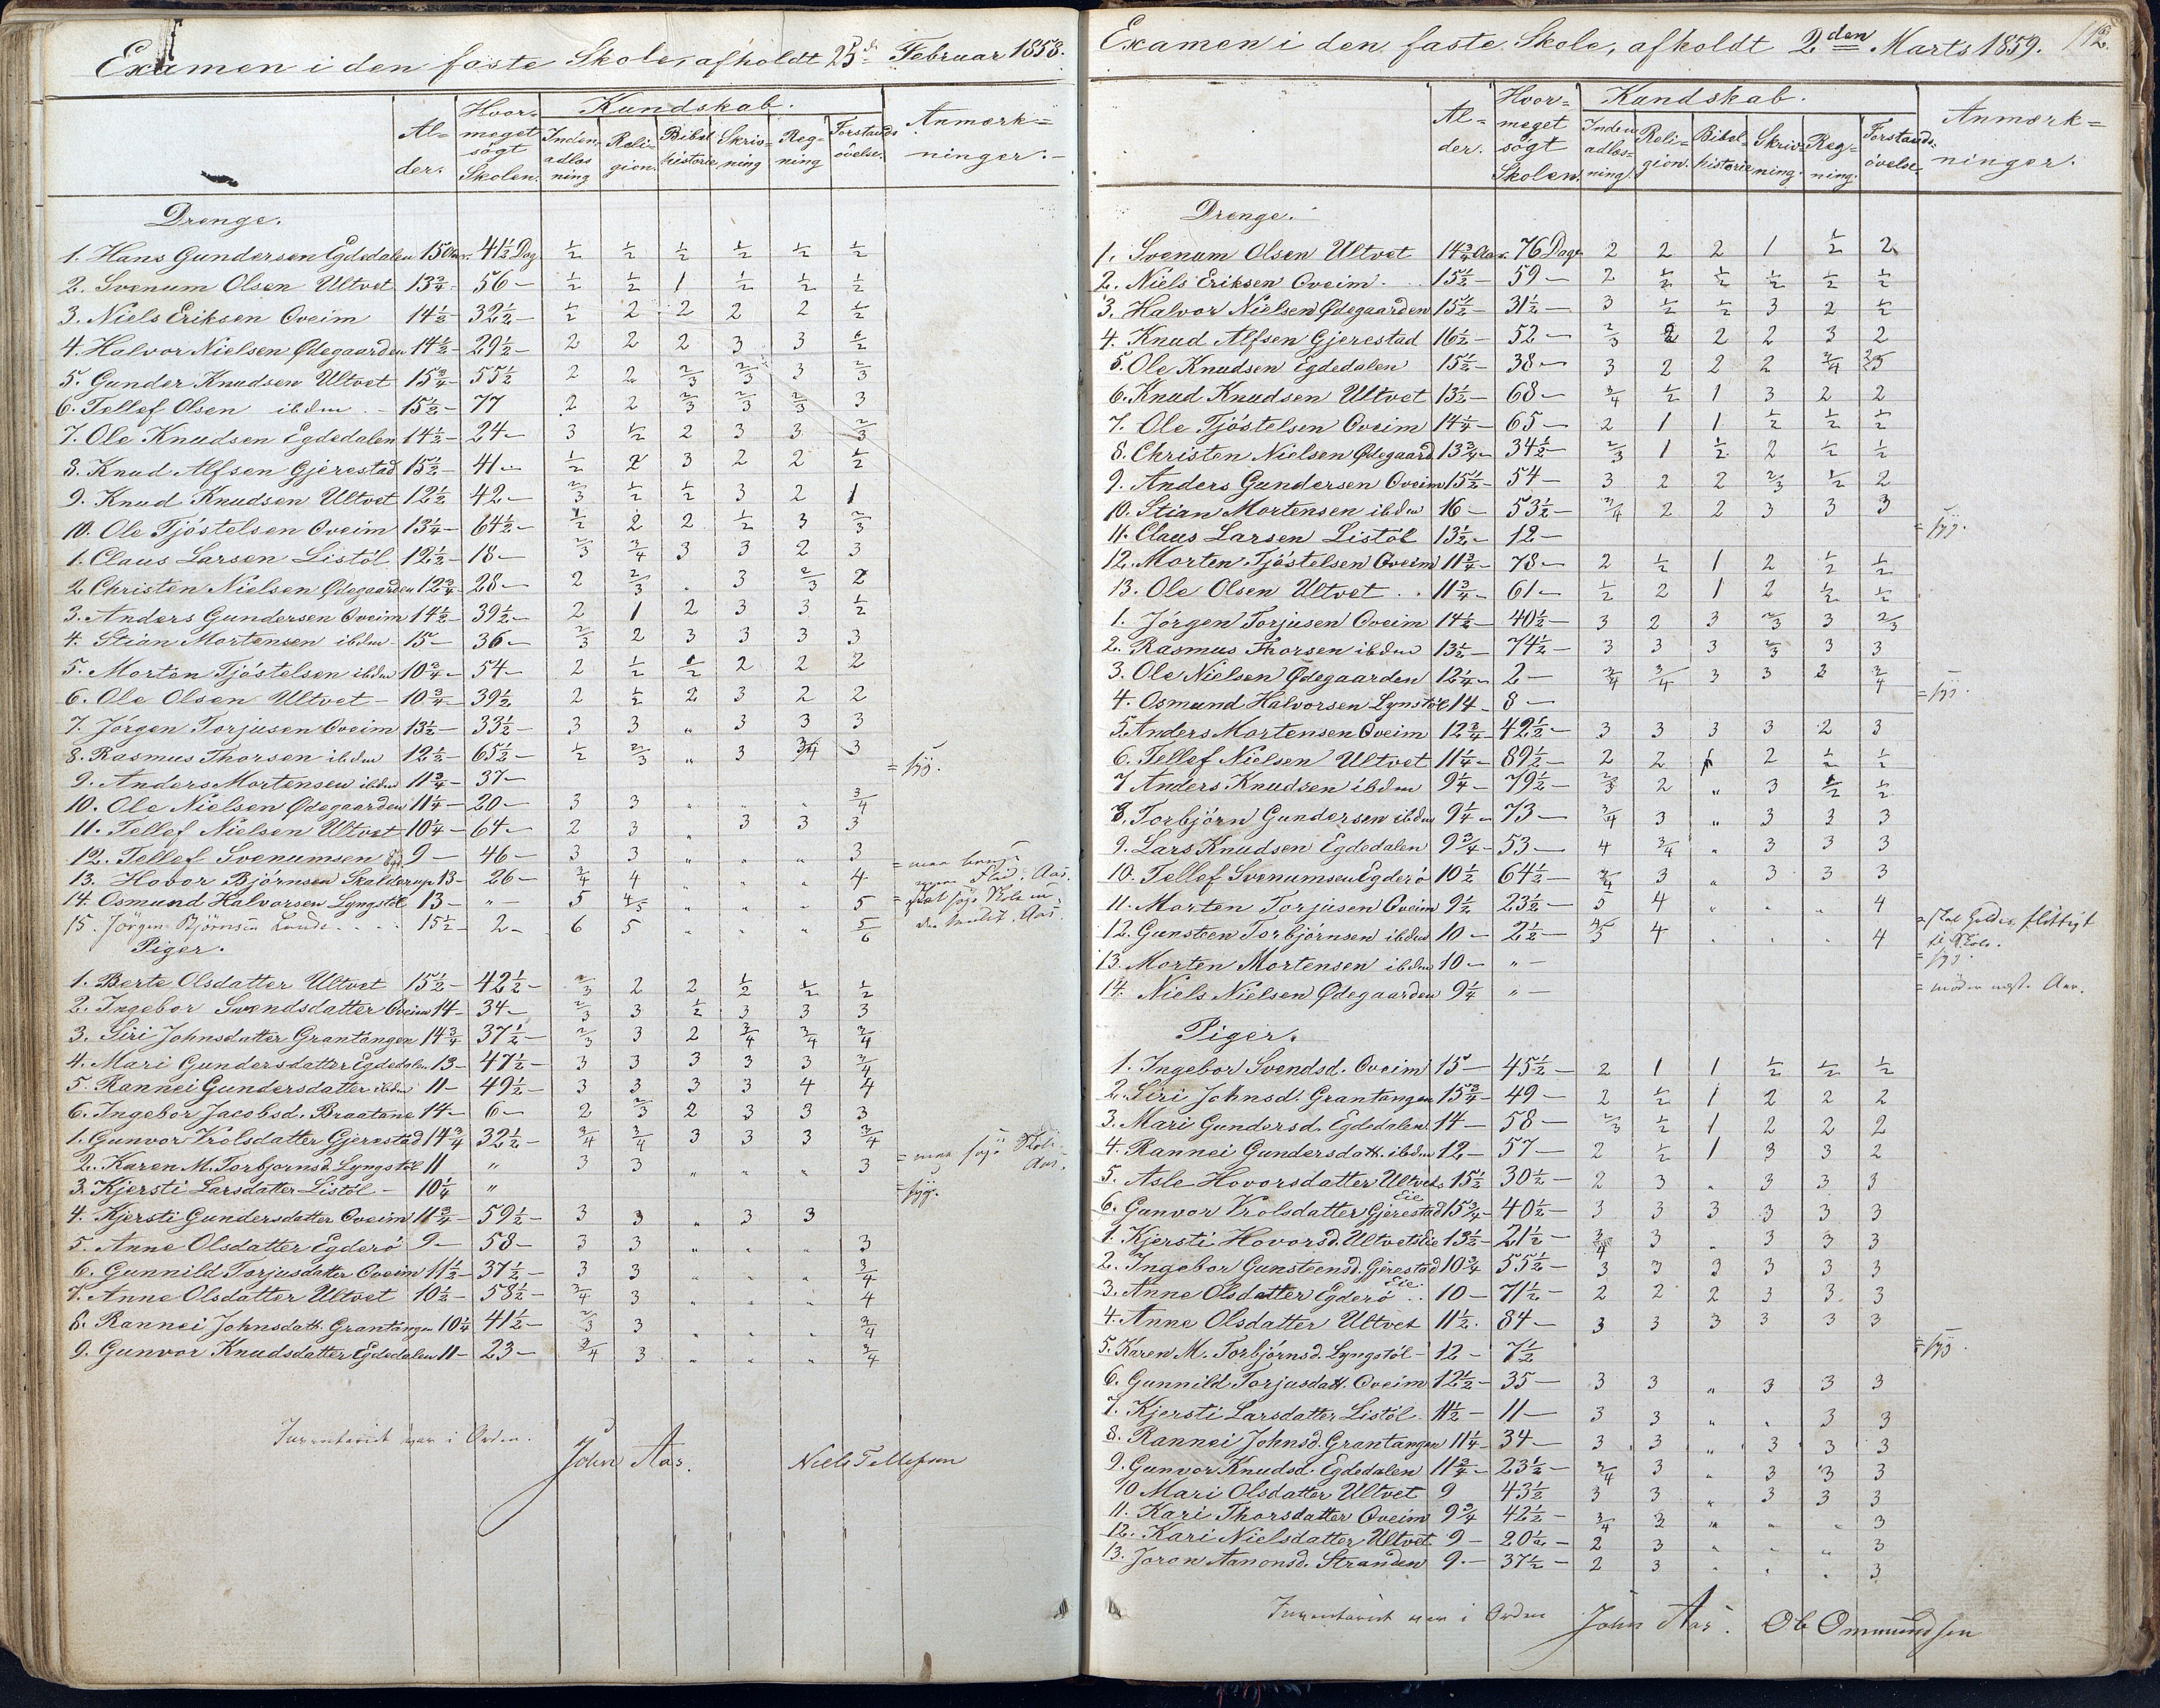 Examen i den faste Skole, afholdt 25de Februar 1858.
Al-
der.
Hvor-
meget
søgt
Skolen.
Kundskab.
Inden-
adlæs
ning
Reli-
gion.
Bibel
historie
Skriv-
ning
Reg-
ning
Forstands
øvelse.
Anmærk-
ninger.
Drenge.
1. Hans Gundersen Egdedalen 15 Aar. 41½ Dag ½ ½ ½ ½ ½ ½
2. Svenum Olsen Ultvet 13¾ - 56 - ½ ½ 1 ½ ½ ½
3. Niels Eriksen Oveim 14½ - 32½ - ½ 2 2 2 2 ½
4. Halvor Nielsen Ødegaarden 14½ - 29½ - 2 2 2 3 3 ½
5. Gunder Knudsen Ultvet 15¾ - 55½ 2 2 2/3 2/3 3 2/3
6. Tellef Olsen ibdm - 15½ - 77 2 2 2/3 2/3 2/3 3
7. Ole Knudsen Egdedalen 14½ - 24 - 3 ½ 2 3 3 2/3
8. Knud Alfsen Gjerestad 15½ - 41 - ½ 2 3 2 2 ½
9. Knud Knudsen Ultvet 12½ - 42 - 2/3 ½ ½ 3 2 1
10. Ole Tjøstelsen Oveim 13¼ - 64½ - ½ 2 2 ½ 3 2/3
1. Claus Larsen Listøl 12½ - 18 - 2/3 3/4 3 3 2 3
2. Christen Nielsen Ødegaarden 12¾ - 28 - 2 2/3 . 3 2/3 2
3. Anders Gundersen Oveim 14½ - 39½ - 2 1 2 3 3 ½
4. Stian Mortensen ibdm - 15 - 36 - 2/3 2 3 3 3 3
5. Morten Tjøstelsen ibdm 10¾ - 54 - 2 ½ ½ 2 2 2
6. Ole Olsen Ultvet - 10¾ - 39½ 2 ½ 2 3 2 2
7. Jørgen Torjusen Oveim 13½ - 33½ - 3 3 " 3 3 3
8. Rasmus Thorsen ibdm 12½ - 65½ - ½ 2/3 " 3 3/4 3
9. Anders Mortensen ibdm 11¾ - 37 - = syg.
10. Ole Nielsen Ødegaarden 11¼ - 20 - 3 3 " " " 3/4
11. Tellef Nielsen Ultvet 10¼ - 64 - 2 3 " 3 3 3
12. Tellef Svenumsen Egd. 9 - 46 - 3 3 " " " 3
13. Hovor Bjørnsen Skalderup 13 - 26 - 3/4 4 " " " 4
14. Osmund Halvorsen Lyngstøl 13 - " - 5 4/5 " " " 5
15. Jørgen Bjørnsen Lunde 15½ - 2 - 6 5 " " " 5/6
Piger.
1. Berte Olsdatter Ultvet 15½ - 42½ - 2/3 2 2 ½ ½ ½
2. Ingebor Svendsdatter Oveim 14 - 34 - 2/3 3 ½ 3 3 3
3. Siri Johnsdatter Grantangen 14¾ 37½ - 2/3 3 2 3/4 3/4 3/4
4. Mari Gundersdatter Egdedalen 13 - 47½ - 3 3 3 3 3 3/4
5. Rannei Gundersdatter ibdm 11 - 49½ - 3 3 3 3 4 4
6. Ingebor Jacobsd. Braatane 14 - 6 - 2 2/3 2 3 3 3
1. Gunvor Trolsdatter Gjerestad 14¾ 32½ - 3/4 3/4 3 3 3 3/4
2. Karen M. Torbjornsd. Lyngstøl 11 " 3 3 " " " 3 = maa søge Skole. Aas.
3. Kjersti Larsdatter Listøl - 10¼ " = syg.
4. Kjersti Gundersdatter Oveim 11¾ - 59½ - 3 3 " 3 3
5. Anne Olsdatter Egderö 9 - 58 - 3 3 " " " 3
6. Gunnild Torjusdatter Oveim 11½ - 37½ - 3 3 " " " 3/4
7. Anne Olsdatter Ultvet 10½ - 58½ - 3/4 3 " " " 4
8. Rannei Johnsdatt. Grantangen 10¼ 41½ - 2/3 3 " " " 3/4
9. Gunvor Knudsdatter Egdedalen 11 - 23 - 3/4 3 " " " 3/4
Inventariet var i Orden.
John Aas. Niels Tellefsen
Examen i den faste Skole, afholdt 2den Marts 1859. 112.
Al-
der.
Hvor-
meget
søgt
Skolen.
Kundskab.
Inden
adlæs-
ning.
Reli-
gion.
Bibel-
historie
Skriv-
ning.
Reg-
ning.
Forstands-
øvelse
Anmærk-
ninger.
Drenge.
1. Svenum Olsen Ultvet 14¾ Aar. 76 Dage 2 2 2 1 ½ 2
2. Niels Eriksen Oveim. 15½ - 59 - 2 ½ ½ ½ ½ ½
3. Halvor Nielsen Ødegaarden 15½ - 31½ - 3 ½ ½ 3 2 ½
4. Knud Alfsen Gjerestad 16½ - 52 - 2/3 2 2 2 3 2
5. Ole Knudsen Egdedalen 15½ - 38 - 3 2 2 2 3/4 2/3
6. Knud Knudsen Ultvet 13½ - 68 - 3/4 ½ 1 3 2 2
7. Ole Tjøstelsen Oveim 14¼ - 65 - 2 1 1 ½ ½ ½
8. Christen Nielsen Ødegaard. 13¾ - 34½ - 2/3 1 ½ 2 ½ ½
9. Anders Gundersen Oveim 15½ - 54 - 3 2 2 2/3 ½ 2
10. Stian Mortensen ibdm 16 - 53½ - 3/4 2 2 3 3 3
11. Claus Larsen Listøl 13½ - 12 - = syg.
12. Morten Tjøstelsen Oveim 11¾ - 78 - 2 ½ 1 2 ½ ½
13. Ole Olsen Ultvet . . 11¾ - 61 - ½ 2 1 2 ½ ½
1. Jørgen Torjusen Oveim 14½ - 40½ - 3 2 3 2/3 3 2/3
2. Rasmus Thorsen ibdm 13½ - 74½ - 3 3 3 2/3 3 3
3. Ole Nielsen Ødegaarden 12¼ - 2 - 3/4 3/4 3 3 3 3/4
4. Osmund Halvorsen Lynstøl 14 - 8 - = syg.
5. Anders Mortensen Oveim 12¾ - 42½ - 3 3 3 3 2 3
6. Tellef Nielsen Ultvet 11¼ - 89½ - 2 2 1 2 ½ ½
7 Anders Knudsen ibdm 9¼ - 79½ - 2/3 2 " 3 ½ ½
8. Torbjørn Gundersen ibdm 9¼ - 73 - 3/4 3 " 3 3 3
9. Lars Knudsen Egdedalen 9¾ - 53 - 4 3/4 " 3 3 3
10. Tellef Svenumsen Egderö 10½ 64½ - 3/4 3 " 3 3 3
11. Morten Torjusen Oveim 9½ 23½ - 5 4 " " " 4
12. Gunsteen Torbjørnsen ibdm 10 - 2½ - 4/5 4 " " " 4
13. Morten Mortensen ibdm 10 - " - = syg.
14. Niels Nielsen Ødegaarden 9¼ " - = møder næste Aar.
Piger.
1. Ingebor Svendsd. Oveim 15 - 45½ - 2 1 1 ½ ½ ½
2. Siri Johnsd. Grantangen 15¾ - 49 - 2 ½ 1 2 2 2
3. Mari Gundersd. Egdedalen 14 - 58 - 2/3 ½ 1 2 2 2
4. Rannei Gundersdatt. ibdm 12 - 57 - 2 ½ 1 3 3 2
5. Asle Hovorsdatter Ultvets Eie 15½ 30½ - 2 3 " 3 3 3
6. Gunvor Trolsdatter Gjerestad 15¾ - 40½ - 3 3 3 3 3 3
1. Kjersti Hovorsd. Ultvets Eie 13½ - 21½ - 3/4 3 " 3 3 3
2. Ingebor Gunsteensd. Gjerestad Eie. 10¾ 55½ - 3 3 3 3 3 3
3. Anne Olsdatter Egderö . . 10 - 71½ - 2 2 2 3 3 3
4. Anne Olsdatter Ultvet 11½. 84 - 3 3 3 3 3 3
5. Karen M. Torbjørnsd. Lyngstøl - 12 - 7½ = syg
6. Gunnild Torjusdatt. Oveim 12½ - 35 - 3 3 " 3 3 3
7. Kjersti Larsdatter Listøl. 11½ - 11 - 3 3 " " 3 3
8. Rannei Johnsd. Grantangen 11¼ - 34 - 3 3 " 3 3 3
9. Gunvor Knudsd. Egdedalen 11¾ - 23½ - 3/4 3 " 3 3 3
10 Mari Olsdatter Ultvet 9 43½ 3 3 " 3 3 3
11. Kari Thorsdatter Oveim 9¾ 42½ - 3/4 3 " " " 3
12. Kari Nielsdatter Ultvet 9 - 20½ - 2 3 " " " 3
13. Joron Aanonsd. Stranden 9. - 37½ - 2 3 " " " 3
Inventariet var i Orden John Aas. Ole Ommundsen